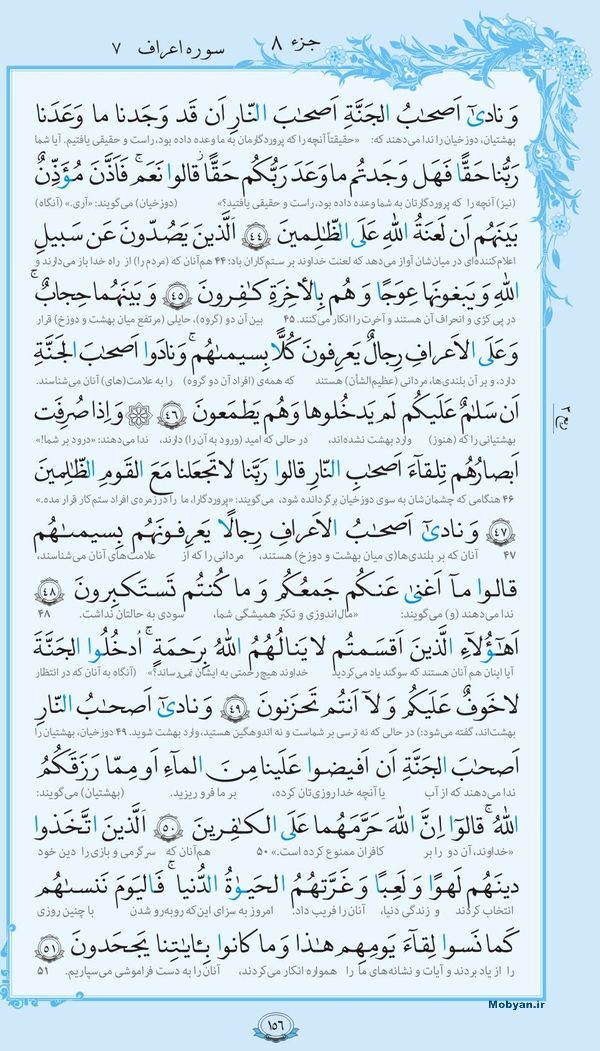 جزء ۸
سوره اعراف ۷
وَ نادىٰٓ اَصحٰبُ الجَنَّةِ اَصحٰبَ النّارِ اَن قَد وَجَدنا ما وَعَدَنا
بهشتیان، دوزخیان را ندا می‌دهند که: «حقیقتاً آنچه را که پروردگارمان به ما وعده داده بود، راست و حقیقی یافتیم. آیا شما
رَبُّنا حَقًّا فَهَل وَجَدتُم ما وَعَدَ رَبُّكُم حَقًّا ۖ قالوا نَعَم ۚ فَاَذَّنَ مُؤَذِّنٌ
(نیز) آنچه را که پروردگارتان به شما وعده داده بود، راست و حقیقی یافتید؟» (دوزخیان) می‌گویند: «آری.» (آنگاه)
بَينَهُم اَن لَعنَةُ اللّٰهِ عَلَى الظّٰالِمينَ ﴿٤٤﴾ اَلَّذينَ يَصُدّونَ عَن سَبيلِ
اعلام‌کننده‌ای در میان‌شان آواز می‌دهد که لعنت خداوند بر ستم‌کاران باد؛ ۴۴ هم‌آنان که (مردم را) از راه خدا باز می‌دارند و
اللّٰهِ وَ يَبغونَها عِوَجًا وَ هُم بِالأٰخِرَةِ كٰفِرونَ ﴿٤٥﴾ وَ بَينَهُما حِجابٌ ۚ
در پی کژی و انحراف آن هستند و آخرت را انکار می‌کنند. ۴۵ بین آن دو (گروه)، حایلی (مرتفع میان بهشت و دوزخ) قرار
وَ عَلَى الاَعرافِ رِجالٌ يَعرِفونَ كُلًّا بِسيمىٰهُم ۚ وَ نادَوا اَصحٰبَ الجَنَّةِ
دارد، و بر آن بلندی‌ها، مردانی (عظیم‌الشأن) هستند که همه‌ی (افراد آن دو گروه) را به علامت(های) آنان می‌شناسند.
اَن سَلٰمٌ عَلَيكُم لَم يَدخُلوها وَ هُم يَطمَعونَ ﴿٤٦﴾ وَ اِذا صُرِفَت
بهشتیانی را که (هنوز) وارد بهشت نشده‌اند، در حالی که امید (ورود به آن را) دارند، ندا می‌دهند: «درود بر شما!»
اَبصارُهُم تِلقاءَ اَصحٰبِ النّارِ قالوا رَبَّنا لا تَجعَلنا مَعَ القَومِ الظّٰالِمينَ
۴۶ هنگامی که چشمان‌شان به سوی دوزخیان برگردانده شود، می‌گویند: «پروردگارا، ما را در زمره‌ی افراد ستم‌کار قرار مده.»
﴿٤٧﴾ وَ نادىٰٓ اَصحٰبُ الاَعرافِ رِجالًا يَعرِفونَهُم بِسيمىٰهُم
۴۷ آنان که بر بلندی‌ها(ی میان بهشت و دوزخ) هستند، مردانی را که از علامت‌های آنان می‌شناسند،
قالوا مآ اَغنىٰ عَنكُم جَمعُكُم وَ ما كُنتُم تَستَكبِرونَ ﴿٤٨﴾
ندا می‌دهند (و) می‌گویند: «مال‌اندوزی و تکبّر همیشگی شما، سودی به حالتان نداشت. ۴۸
اَهٰٓؤُلآءِ الَّذينَ اَقسَمتُم لا يَنالُهُمُ اللّٰهُ بِرَحمَةٍ ۚ اُدخُلُوا الجَنَّةَ
آیا اینان هم آنان هستند که سوگند یاد می‌کردید خداوند هیچ رحمتی به ایشان نمی‌رساند؟» (آنگاه به آنان که در انتظار
لا خَوفٌ عَلَيكُم وَ لآ اَنتُم تَحزَنونَ ﴿٤٩﴾ وَ نادىٰٓ اَصحٰبُ النّارِ
بهشت‌اند، گفته می‌شود:) در حالی که نه ترسی بر شماست و نه اندوهگین هستید، وارد بهشت شوید. ۴۹ دوزخیان، بهشتیان را
اَصحٰبَ الجَنَّةِ اَن اَفيضوا عَلَينا مِنَ المآءِ اَو مِمّا رَزَقَكُمُ
ندا می‌دهند که از آب یا آنچه خدا روزی‌تان کرده، بر ما فرو ریزید. (بهشتیان) می‌گویند:
اللّٰهُ ۚ قالوٓا اِنَّ اللّٰهَ حَرَّمَهُما عَلَى الكٰفِرينَ ﴿٥٠﴾ اَلَّذينَ اتَّخَذوا
«خداوند، آن دو را بر کافران ممنوع کرده است.» ۵۰ هم‌آنان که سرگرمی و بازی را دین خود
دينَهُم لَهوًا وَ لَعِبًا وَ غَرَّتهُمُ الحَيوٰةُ الدُّنيا ۚ فَاليَومَ نَنسىٰهُم
انتخاب کردند و زندگی دنیا، آنان را فریب داد. امروز به سزای این‌که روبه‌رو شدن با چنین روزی
كَما نَسوا لِقآءَ يَومِهِم هٰذا وَ ما كانوا بِـٔايٰتِنا يَجحَدونَ ﴿٥١﴾
را از یاد بردند و آیات و نشانه‌های ما را همواره انکار می‌کردند، آنان را به دست فراموشی می‌سپاریم. ۵۱
١٥٦
Mobyan.ir